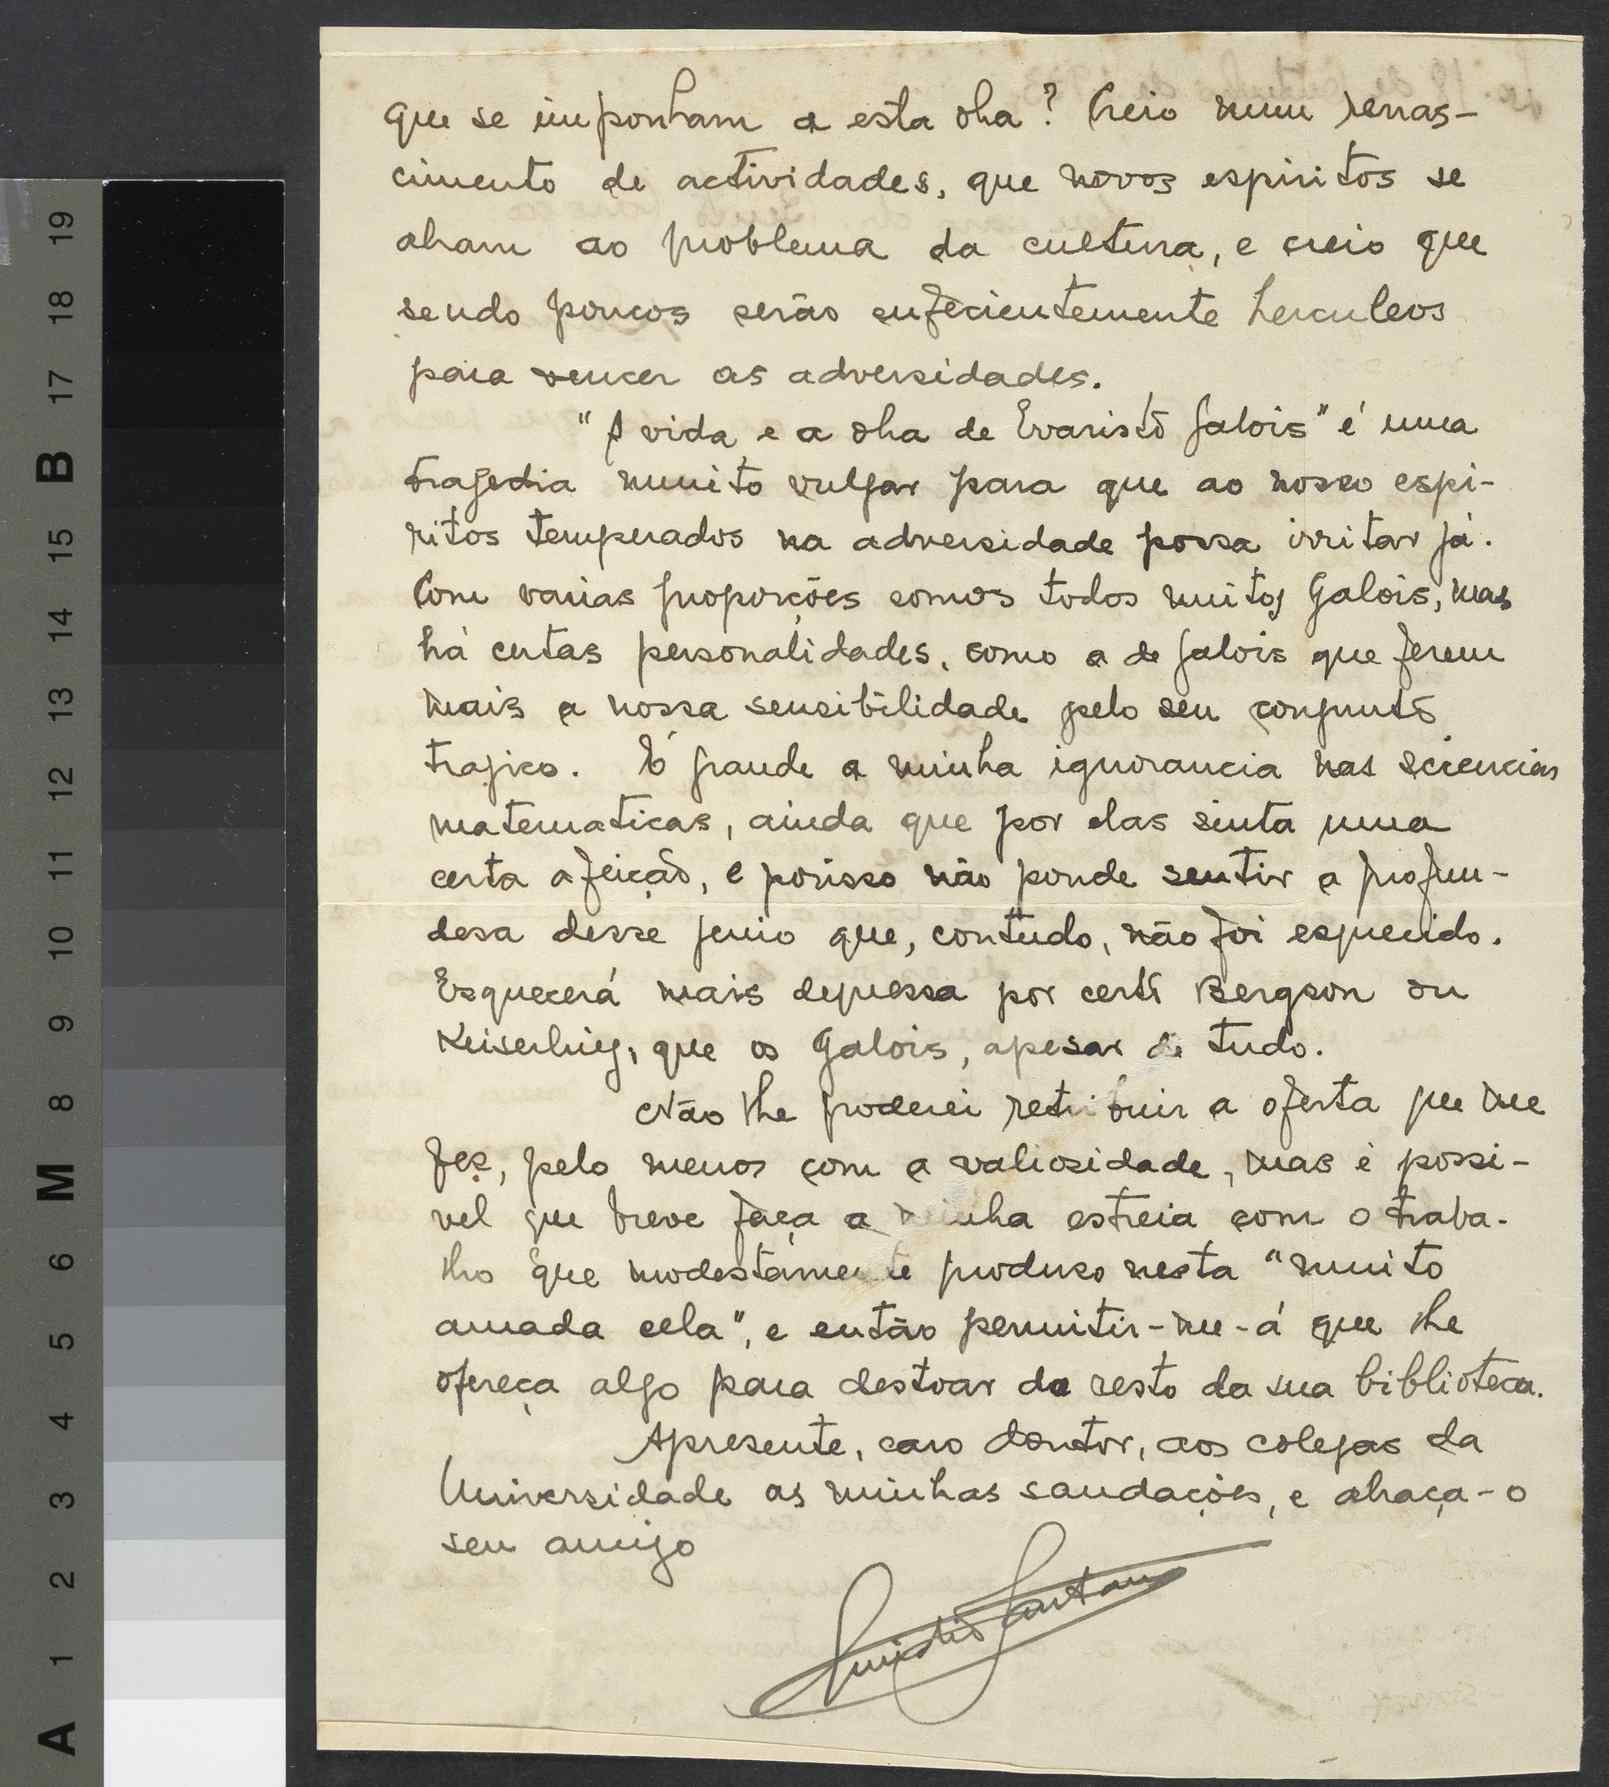 que se imponham a esta obra? Creio num renas-
cimento de actividades, que novos espiritos se
abram ao problema da cultura, e creio que
sendo poucos serão suficientemente herculeos
para vencer as adversidades.
"A vida e a obra de Evaristo Galois" é uma
tragedia muito vulgar para que ao nosso espi-
ritos temperados na adversidade possa irritar já.
Com varias proporções somos todos muitos Galois, mas
há certas personalidades, como a de Galois que ferem
mais a nossa sensibilidade pelo seu conjunto
tragico. É grande a minha ignorancia nas sciencias
matematicas, ainda que por elas sinta uma
certa afeição, e porisso não poude sentir a profun-
desa desse genio que, contudo, não foi esquecido.
Esquecerá mais depressa por certo Bergson ou
Keiserling, que os Galois, apesar de tudo.
Não lhe poderei retribuir a oferta que me
fez, pelo menos com a valiosidade, mas é possi-
vel que breve faça a minha estreia com o traba-
lho que modestamente produzo nesta "muito
amada cela", e então permitir-me-á que lhe
ofereça algo para destoar do resto da sua biblioteca.
Apresente, caro doutor, aos colegas da
Universidade as minhas saudações, e abraça-o
seu amigo
19
18
17
B
15
14
13
12
11
10
9
8
M
6
5
4
3
2
1
A